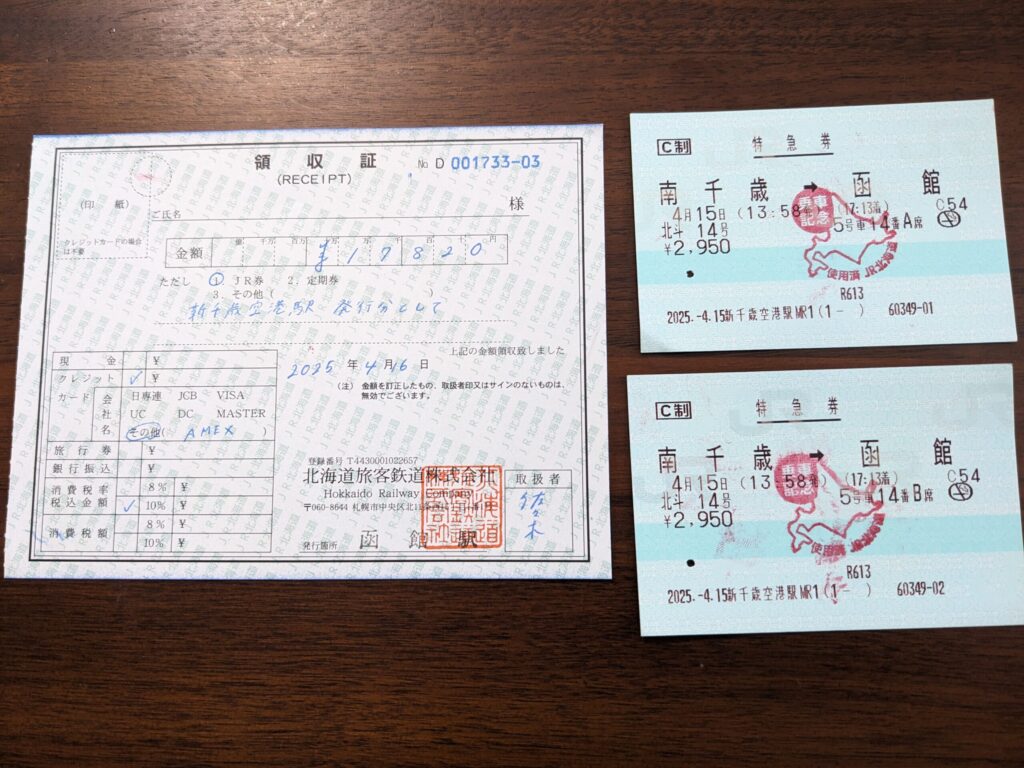 領収証
(RECEIPT)
№ D 001733-03
(印 紙)
クレジットカードの場合
は不要
ご氏名 様
金額 ¥17820
ただし ① JR券 2. 定期券
3. その他( )
新千歳空港駅 発行分として
上記の金額領収致しました
2025年4月16日
(注) 金額を訂正したもの、取扱者印又はサインのないものは、
無効でございます。
現金 ¥
クレジット ✓ ¥
カード 会社名 日専連 JCB VISA
UC DC MASTER
その他( AMEX )
旅行券 ¥
銀行振込 ¥
消費税率 8% ¥
税込金額 ✓ 10% ¥
消費税額 8% ¥
10% ¥
登録番号 T4430001022657
北海道旅客鉄道株式会社
Hokkaido Railway Company
〒060-8644 札幌市中央区北11条西
発行箇所 函館駅
取扱者
佐々木
C制 特急券
南千歳 → 函館
4月15日 (13:58発) (17:13着) C54
北斗 14号 5号車14番A席
¥2,950
乗車記念
使用済 JR北海道
R613
2025.-4.15新千歳空港駅MR1(1- ) 60349-01
C制 特急券
南千歳 → 函館
4月15日 (13:58発) (17:13着) C54
北斗 14号 5号車14番B席
¥2,950
乗車記念
使用済 JR北海道
R613
2025.-4.15新千歳空港駅MR1(1- ) 60349-02